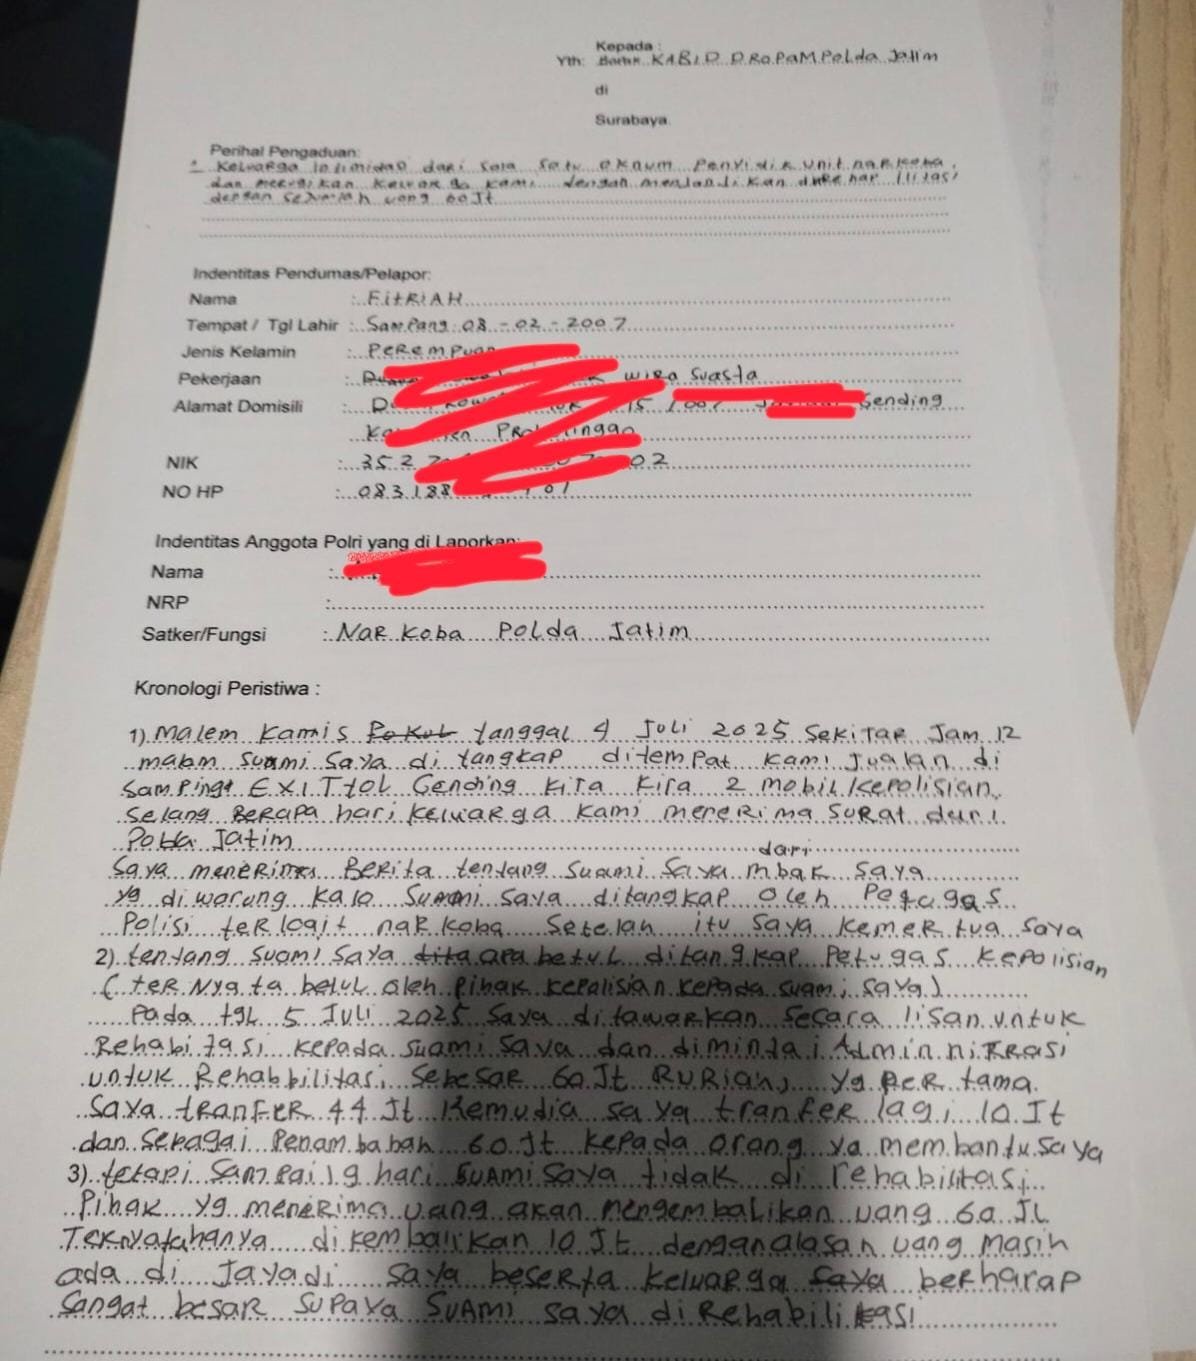 Kepada :
Yth: KABID PROPAM Polda Jatim
di
Surabaya.
Perihal Pengaduan:
Keluarga intimidas dari sala satu oknum Penyidik unit narkoba,
dan merugikan keluarga kami dengan menjandikan direhabilitasi
dengan sejumlah uang 60 Jt
Indentitas Pendumas/Pelapor:
Nama : FitRIAH
Tempat / Tgl Lahir : Sampang 08-02-2007
Jenis Kelamin : PeRempuan
Pekerjaan : wiraSuasta
Alamat Domisili : Gending
NIK : 352 02
NO HP : 083188 01
Indentitas Anggota Polri yang di Laporkan:
Nama :
NRP :
Satker/Fungsi : NaRkoba Polda Jatim
Kronologi Peristiwa :
1) Malem Kamis tanggal 4 Juli 2025 SekiTaR Jam 12
malam Suami Saya di tangkap ditempat kami Jualan di
Samping EXITtol Gending kira kira 2 mobil kepolisian
Selang BeRapa hari keluarga kami meneRima SuRat dari
Polda Jatim
dari
Saya menerima Berita tentang Suami Saya mbak Saya
yg di warung kalo Suami saya ditangkap oleh Petugas
Polisi teRkait naRkoba Setelah itu Saya KemeRtua Saya
2) tentang Suami Saya betul ditangkap Petugas kepolisian
(teRNyata betul oleh pihak kepalisian kepada suami saya)
Pada tgl 5 Juli 2025 Saya ditawarkan Secara lisan untuk
Rehabitasi kepada Suami Saya dan dimintai AdminniRrasi
untuk Rehabbilitasi SebesaR 60 Jt RuRiah, yg peRtama
Saya tRanFeR 44 Jt Kemudia saya tranfeR lagi 10 Jt
dan Sebagai Penambahan 60 Jt kepada orang ya membantu Saya
3) tetapi Sampai 19 hari Suami Saya tidak di rehabilitasi
Pihak yg meneRima uang akan mengembalikan uang 60 Jt
TeRnyatahanya di kembalikan 10 Jt dengan alasan uang masih
ada di Jayadi Saya beserta keluaRga beRhaRap
Sangat besaR SupaYa Suami Saya diRehabilikasi